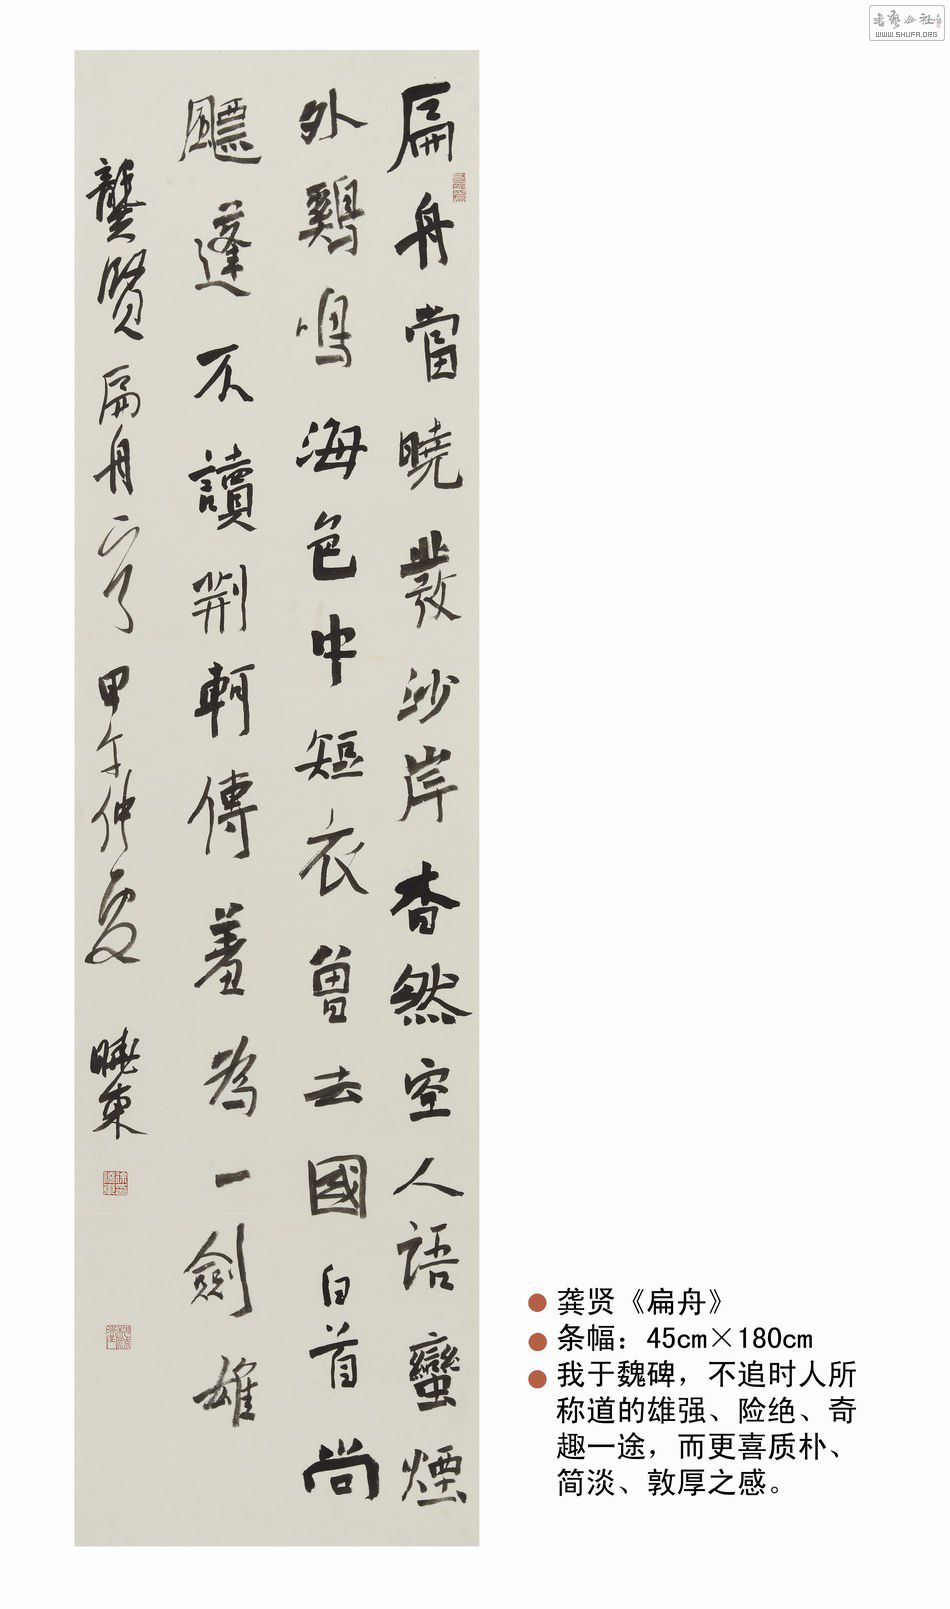 扁舟當曉發沙岸杳然空人語蠻煙
外鷄鳴海色中短衣曾去國白首尚
飄蓬不讀荆軻傳羞為一劍雄
龔贤扁舟一首甲午仲夏 曉東
龚贤《扁舟》
条幅：45cm×180cm
我于魏碑，不追时人所
称道的雄强、险绝、奇
趣一途，而更喜质朴、
简淡、敦厚之感。
WWW.SHUFA.ORG